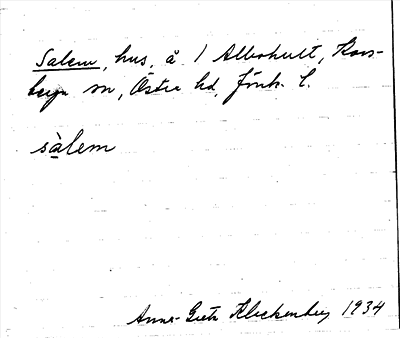 Salem, hus, å 1 Albohult, Kors-
berga sn, Östra hd, Jönk. l.
sàlem
Anna-Greta Kleckenberg 1934